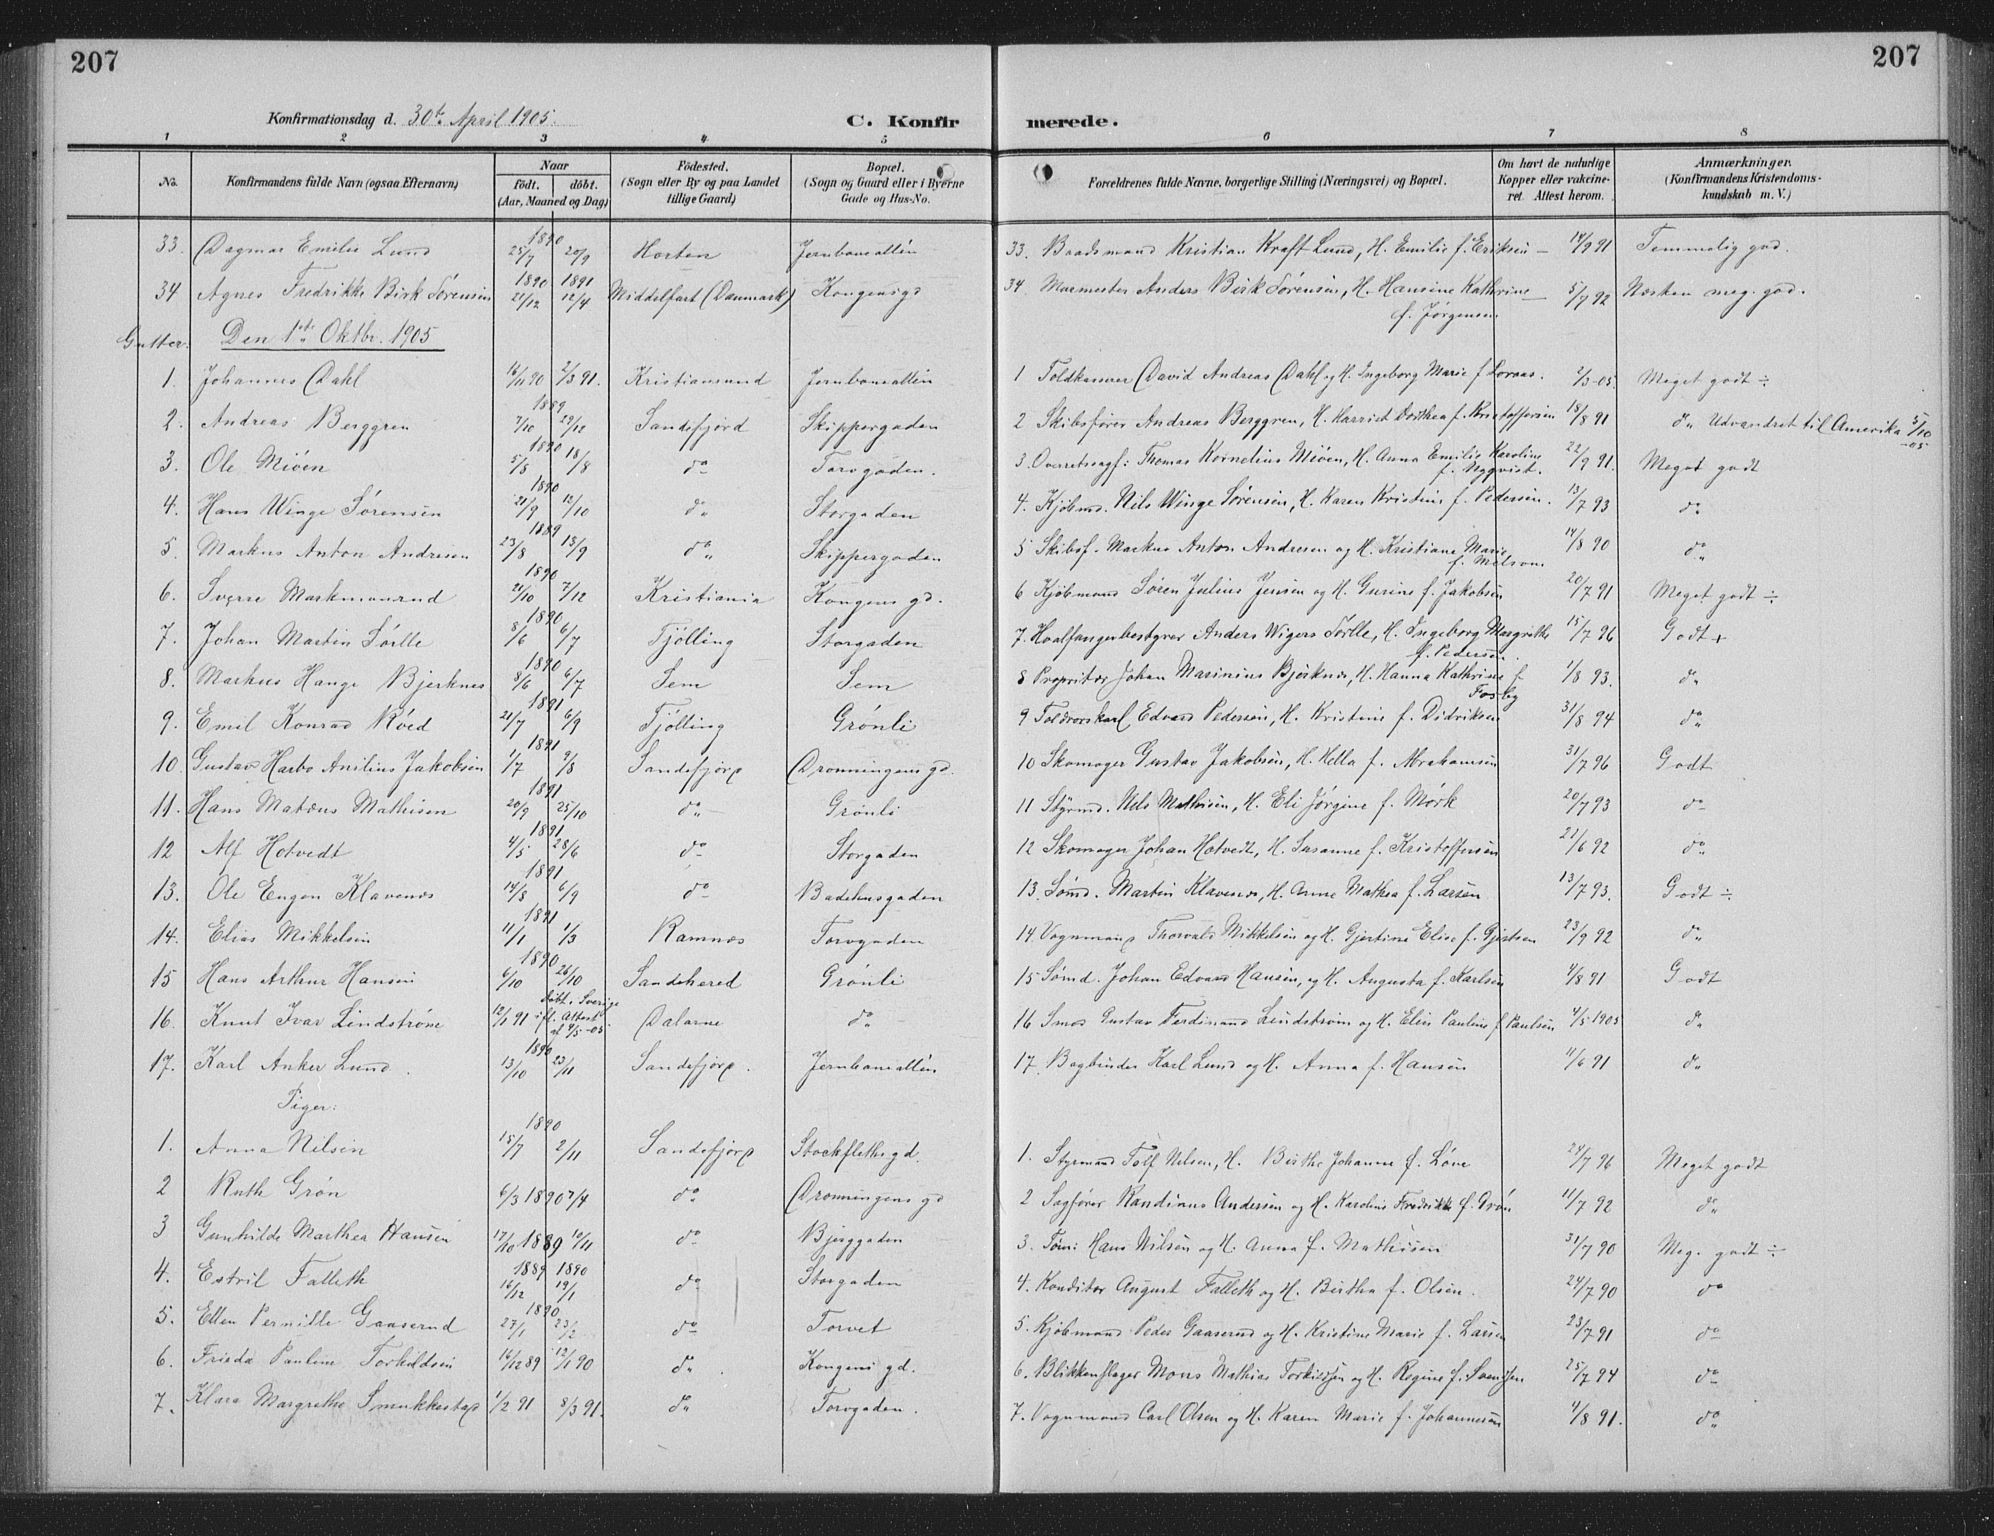 207
207
Konfirmationsdag d. 30te April 1905.
C. Konfirmerede.
1 2 3 4 5 6 7 8
No. Konfirmandens fulde Navn (ogsaa Efternavn) Naar födt. döbt. (Aar, Maaned og Dag) Födested. (Sogn eller By og paa Landet tillige Gaard) Bopæl. (Sogn og Gaard eller i Byerne Gade og Hus-No. Forældrenes fulde Navne, borgerlige Stilling (Næringsvei) og Bopæl. Om havt de naturlige Kopper eller vakcineret. Attest herom. Anmærkninger. (Konfirmandens Kristendomskundskab m. V.)
33. Dagmar Emilie Lund 1890 25/7 20/9 Horten Jernbanealléen 33. Baadsmand Kristian Kraft Lund, H. Emilie f. Eriksen – 14/9 91 Temmelig god.
34 Agnes Fredrikke Birk Sörensen 1890 21/12 1891 12/4 Middelfart (Danmark) Kongensgd 34. Murmester Anders Birk Sörensen, H. Hansine Kathrine f. Jörgensen 5/7 92 Næsten meg. god.
Gutter. Den 1ste Oktbr. 1905
1. Johannes Dahl 16/11 90 2/3 91. Kristiansund Jernbanealléen 1 Toldkasserer David Andreas Dahl og H. Ingeborg Marie f. 2/3-05. Meget godt ÷
2. Andreas Berggren 1889 7/10 29/12 Sandefjord Skippergaden 2 Skibsförer Andreas Berggren, H. Harriet Dorthea f. Kristoffersen 18/8 91 do Udvandret til Amerika 5/10 -05
3. Ole Miöen 1890 5/8 18/8 do Torvgaden. 3. Overretssagf: Thomas Kornelius Miöen, H. Anna Emilie Karoline f. Nyqvist. 22/9 91. Meget godt
4. Hans Winge Sörensen 1890 21/9 12/10 do Storgaden 4. Kjöbmd. Nils Winge Sörensen, H. Karen Kristine f. Pedersen. 13/7 93 do
5. Markus Anton Andresen 1889 23/8 15/9 do Skippergaden 5 Skibsf. Markus Anton Andresen og H. Kristiane Marie f. Melsom 14/8 90 do
6. Sverre Markmanrud 1890 21/10 7/12 Kristiania Kongens gd. 6 Kjöbmand Sören Julius Jensen og H. Gurine f. Jakobsen 20/7 91 Meget godt ÷
7. Johan Martin Sörlle 1890 8/6 6/7 Tjölling Storgaden 7. Hvalfangerbestyrer Anders Wigers Sörlle, H. Ingeborg Margrethe f. Pedersen. 15/7 96 Godt +
8. Markus Hauge Bjerknes 1890 8/6 6/7 Sem Sem 8 Propritær Johan Marinius Bjerknes, H. Hanna Kathrine f 1/8 93. do
9. Emil Konrad Röed 1891 21/7 6/9 Tjölling Grönli 9 Toldrorskarl Edvard Pedersen, H. Kristine f. Didriksen 31/8 94 do
10. Gustav Harbo Anilius Jakobsen 1891 1/7 9/8 Sandefjord Dronningens gd. 10 Skomager Gustav Jakobsen, H. Hella f. Abrahamsen 31/7 96 Godt
11. Hans Matæus Mathisen 1891 20/9 25/10 do Grönli 11 Styrmd. Nils Mathisen, H. Eli Jörgine f. Mörk 20/7 93 do
12 Alf Hotvedt 1891 4/5 28/6 do Storgaden 12 Skomager Johan Hotvedt, H. Susanne f. Kristoffersen 21/6 92 do
13. Ole Eugen Klavenæs 1891 14/8 6/9 do Badehusgaden 13. Sömd. Martin Klavenæs, H. Anne Mathea f. Larsen 13/7 93. Godt ÷
14. Elias Mikkelsen 1891 11/1 1/3 Ramnæs Torvgaden 14. Vognmand Thorvald Mikkelsen og H. Gjertine Elise f. Gjertsen 23/9 92 do
15 Hans Arthur Hansen 1890 6/10 26/10 Sandehered Grönli 15 Sömd. Johan Edvard Hansen, og H. Augusta f. Karlsen 4/8 91 Godt
16. Knut Ivar Lindström 12/1 91 döbt i Sverige ifl. Attest af 4/5-05 Dalarne do 16 Smed Gustav Ferdinand Lindström og H. Elin Pauline f Paulsen 4/5 1905 do
17. Karl Anker Lund 1890 13/10 23/11 Sandefjord. Jernbanealléen 17. Bogbinder Karl Lund og H. Anna f. Hansen 11/6 91 do
Piger:
1. Anna Nilsen 1890 15/7 2/11 Sandefjord Stockfleths gd. 1. Styrmand Tolf Nilsen, H. Birthe Johanne f. Löve 24/7 96 Meget godt
2 Ruth Grön 6/3 1890 7/4 do Dronningens gd 2 Sagförer Randinus Andersen og H. Karoline Fredrikke f. Grön 11/7 92 do
3 Gunhilde Marthea Hansen 17/10 1889 10/11 do Bjerggaden 3. Töm: Hans Nilsen og H. Anna f. Mathissen 31/7 90 Meg. godt ÷
4. Estril Falleth 1889 16/12 1890 19/1 do Storgaden 4. Konditor August Falleth og H. Birthe f. Olsen. 24/7 90 do
5. Ellen Pernille Gaaserud 1890 27/1 23/2 do Torvet 5. Kjöbmand Peder Gaaserud og H. Kristine Marie f. Larsen 23/7 91 do
6. Frieda Pauline Torkildsen 16/12 89 12/1 90 do Kongens gd. 6. Blikkenslager Mons Mathias Torkildsen og H. Regine f. Svendsen 25/7 94 do
7. Klara Margrethe Smukkestad 1/2 91 8/3 91. do Torvgaden. 7. Vognmand Carl Olsen og H. Karen Marie f. Johannesen 4/8 91. do